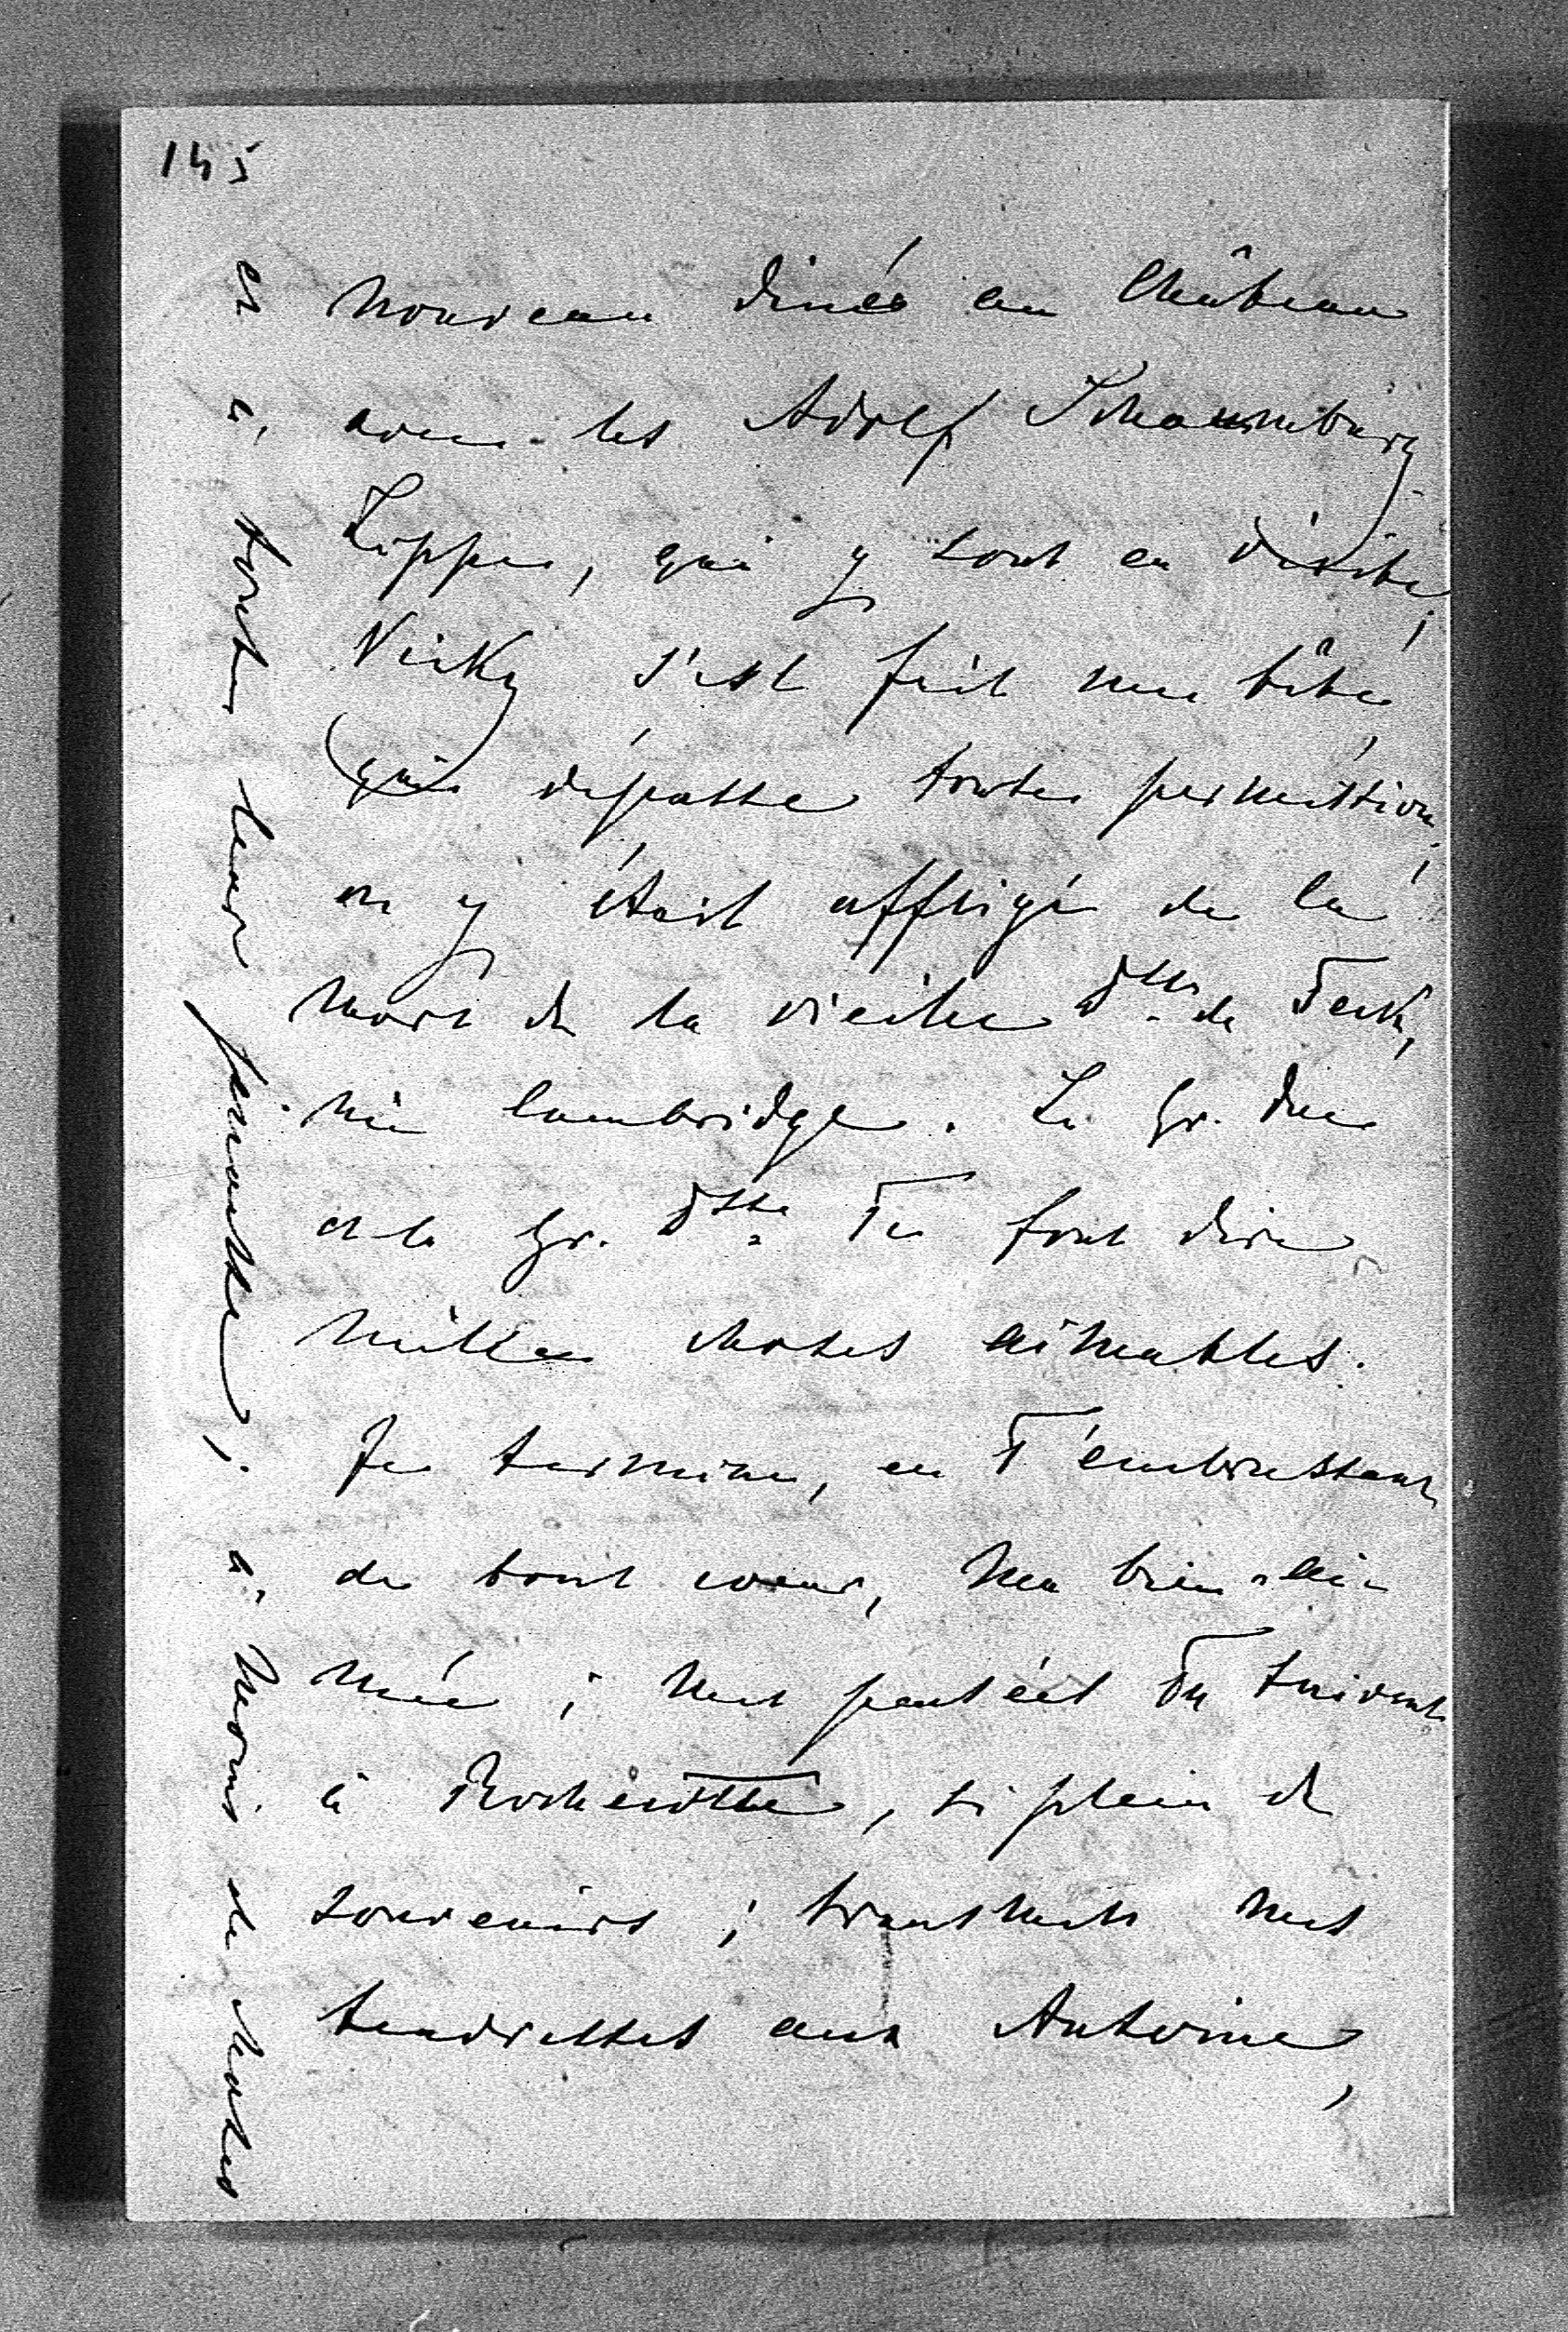 145
nouveau dîné au Château
avec les Adolf Schaumburg
Lippe, qui y sont en visite;
Vicky s'est fait une tête,
qui dépasse toute permission;
on y était affligé de la
mort de la vieille Dsse de Teck,
née Cambridge. Le Gr. Duc
et la Gr. Dsse Te font dire
mille choses aimables.
Je termine, en T'embrassant
de tout cœur, ma bien-ai-
mée; mes pensées Te suivent
à Rochecotte, si plein de
souvenirs; transmets mes
tendresses aux Antoine,
et à toute leur famille; à moins de choses